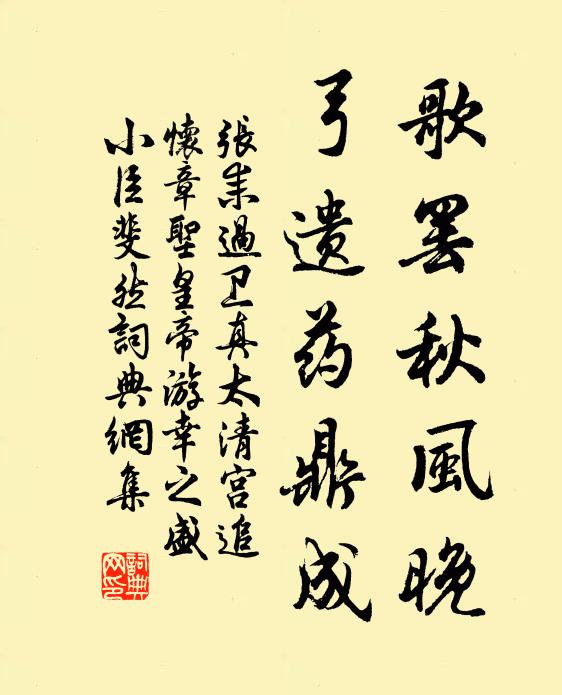 歌罢秋風晚
弓遗药鼎成
張耒過卫真太清宫追
懷章聖皇帝游幸之盛
小臣斐然詞典網集
詞典网印